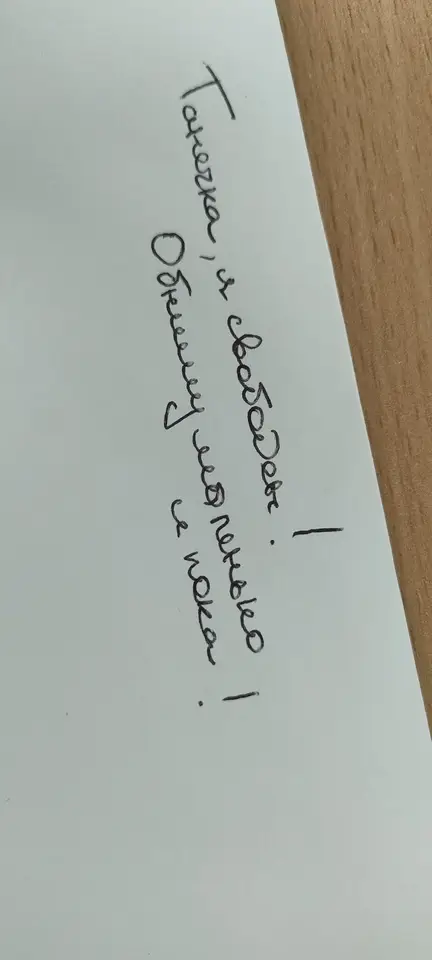 Танечка, я свободен!
Обниму маленько
и пока!